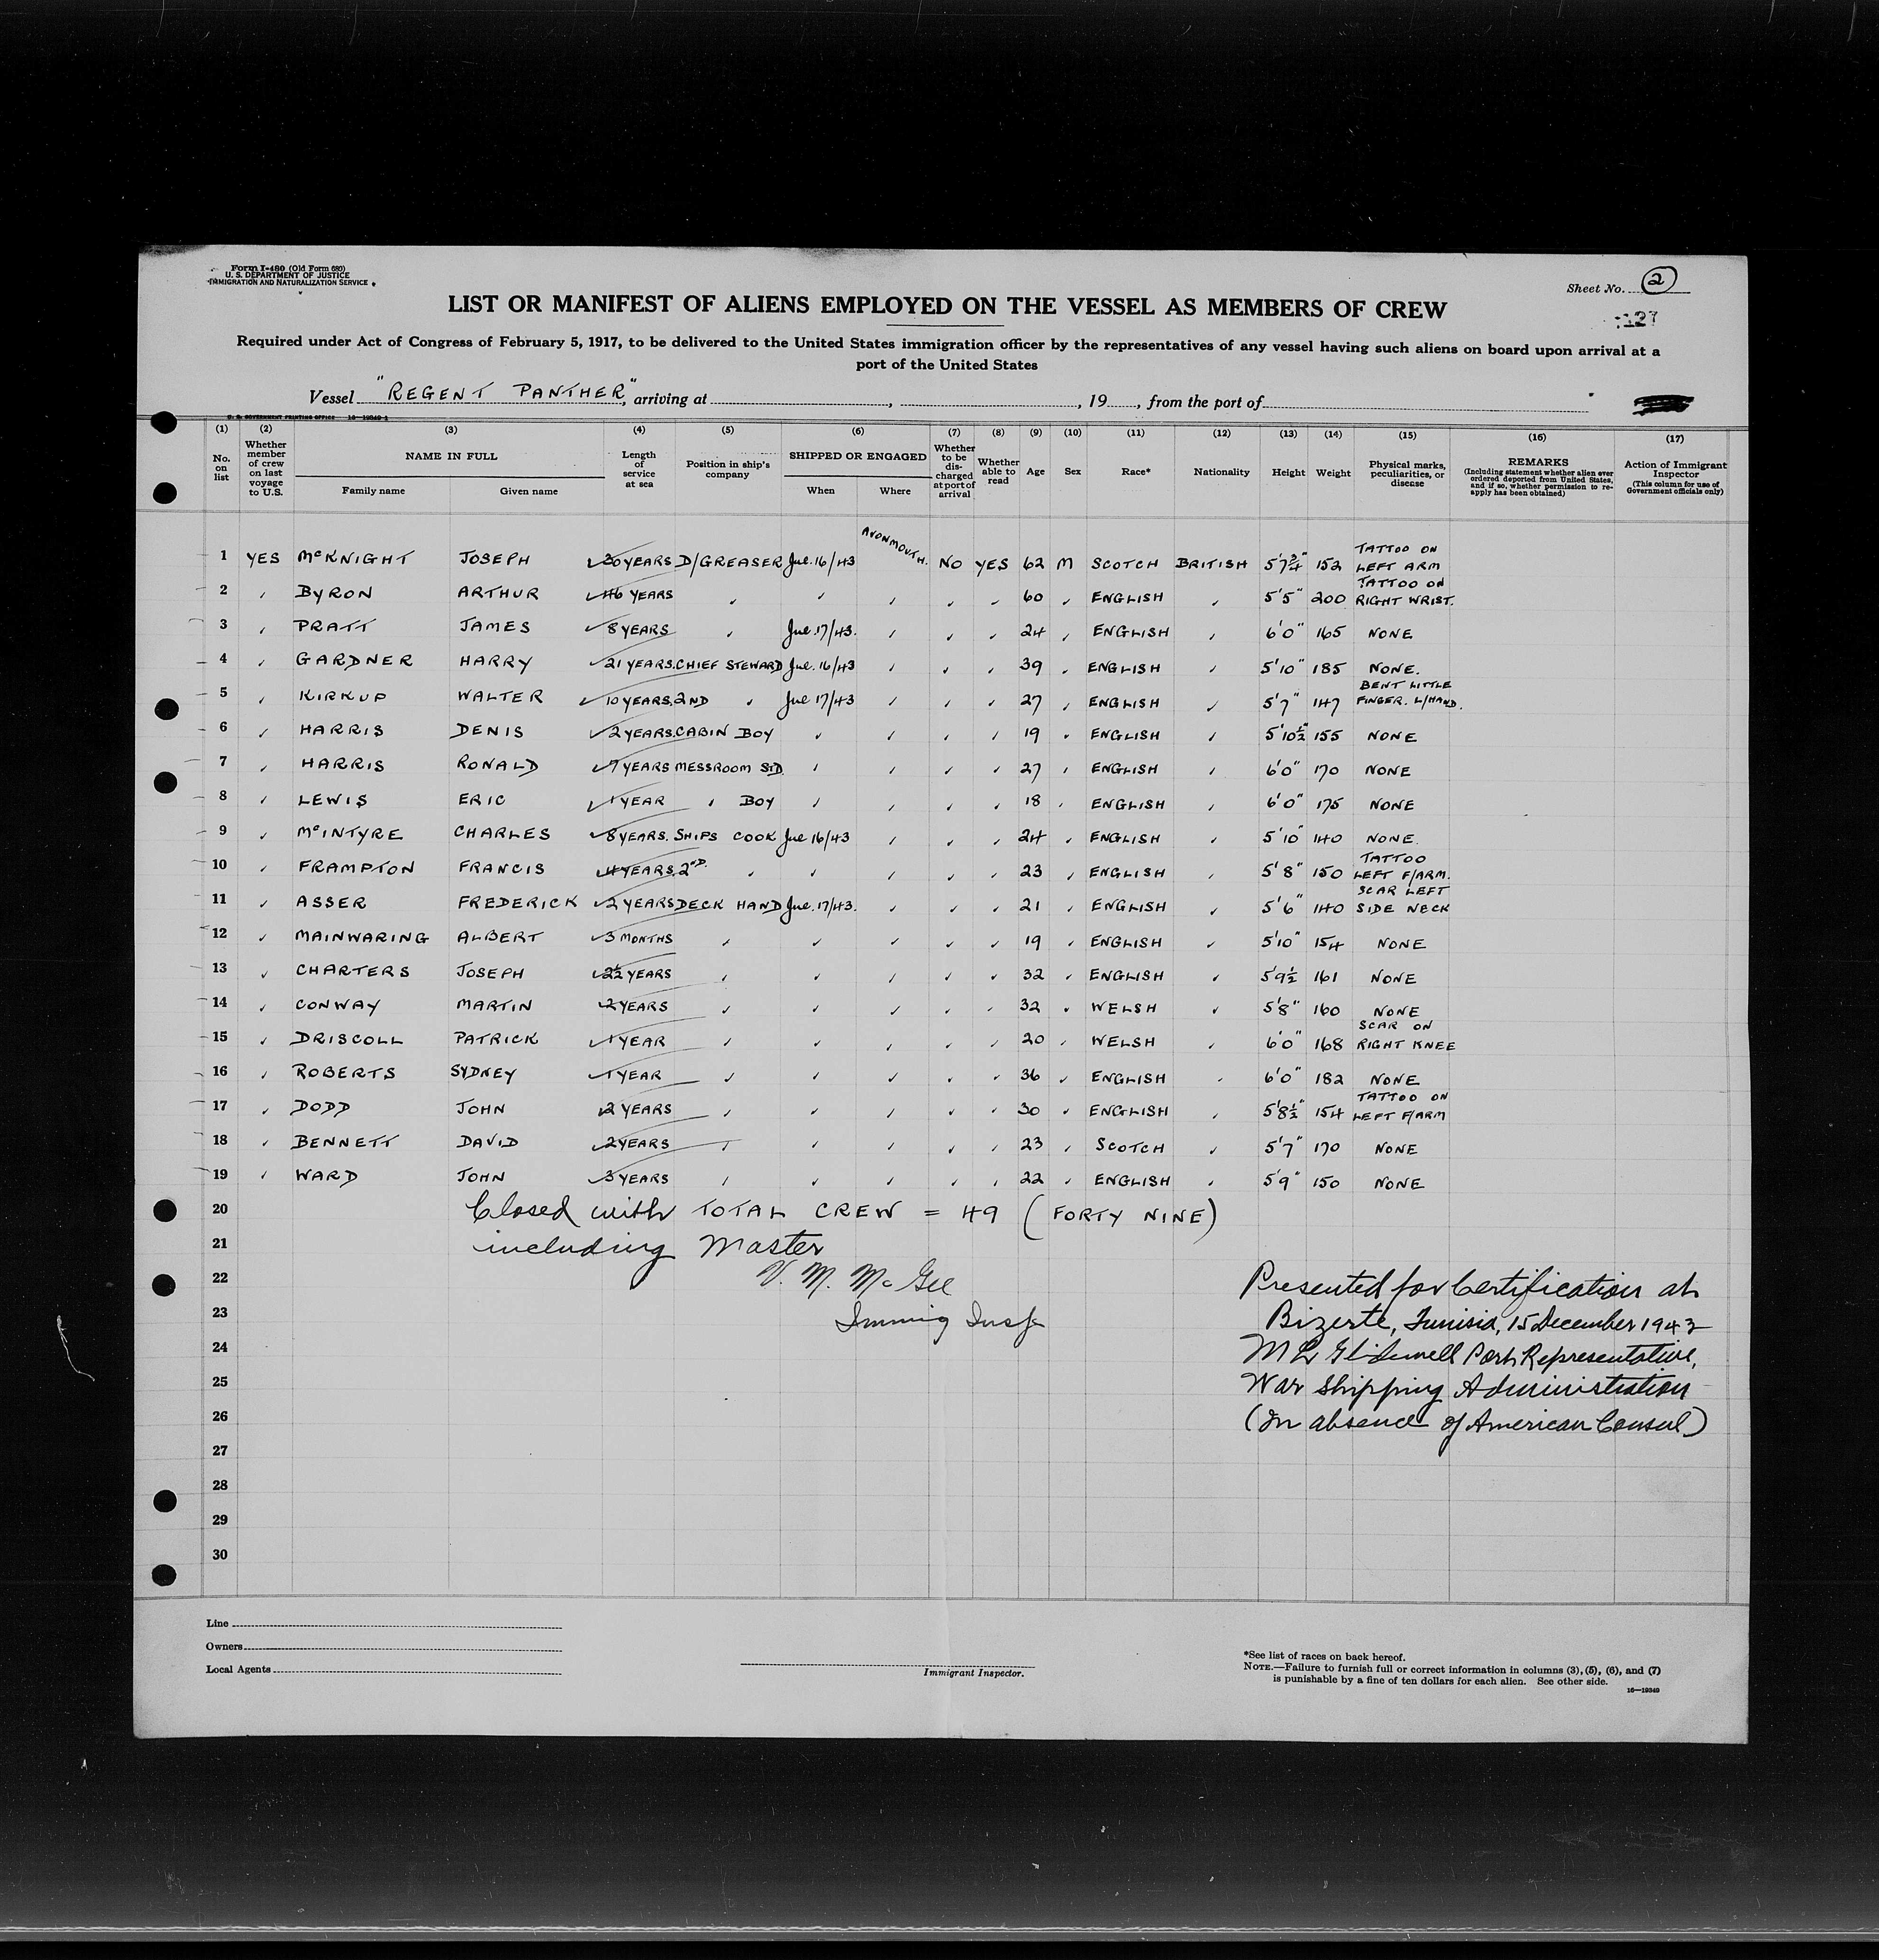 Form I-480 (Old Form 680)
U. S. DEPARTMENT OF JUSTICE
IMMIGRATION AND NATURALIZATION SERVICE
Sheet No. 2
127
LIST OR MANIFEST OF ALIENS EMPLOYED ON THE VESSEL AS MEMBERS OF CREW
Required under Act of Congress of February 5, 1917, to be delivered to the United States immigration officer by the representatives of any vessel having such aliens on board upon arrival at a
port of the United States
Vessel "REGENT PANTHER", arriving at , , 19 , from the port of
U. S. GOVERNMENT PRINTING OFFICE 16—19349-1
(1) (2) (3) (4) (5) (6) (7) (8) (9) (10) (11) (12) (13) (14) (15) (16) (17)
No. on list
Whether member of crew on last voyage to U.S.
NAME IN FULL
Family name Given name
Length of service at sea
Position in ship's company
SHIPPED OR ENGAGED
When Where
Whether to be discharged at port of arrival
Whether able to read
Age
Sex
Race*
Nationality
Height
Weight
Physical marks, peculiarities, or disease
REMARKS
(Including statement whether alien ever ordered deported from United States, and if so, whether permission to re-apply has been obtained)
Action of Immigrant Inspector
(This column for use of Government officials only)
1 YES McKNIGHT JOSEPH 30 YEARS D/GREASER Jul. 16/43 AVONMOUTH. NO YES 62 M SCOTCH BRITISH 5'7¾" 152 TATTOO ON LEFT ARM
2 ✓ BYRON ARTHUR 46 YEARS ✓ ✓ ✓ ✓ ✓ 60 ✓ ENGLISH ✓ 5'5" 200 TATTOO ON RIGHT WRIST.
3 ✓ PRATT JAMES 8 YEARS ✓ Jul. 17/43. ✓ ✓ ✓ 24 ✓ ENGLISH ✓ 6'0" 165 NONE
4 ✓ GARDNER HARRY 21 YEARS. CHIEF STEWARD Jul. 16/43 ✓ ✓ ✓ 39 ✓ ENGLISH ✓ 5'10" 185 NONE.
5 ✓ KIRKUP WALTER 10 YEARS. 2ND ✓ Jul 17/43 ✓ ✓ ✓ 27 ✓ ENGLISH ✓ 5'7" 147 BENT LITTLE FINGER. L/HAND.
6 ✓ HARRIS DENIS 2 YEARS. CABIN BOY ✓ ✓ ✓ ✓ 19 ✓ ENGLISH ✓ 5'10½" 155 NONE
7 ✓ HARRIS RONALD 7 YEARS MESSROOM STD. ✓ ✓ ✓ ✓ 27 ✓ ENGLISH ✓ 6'0" 170 NONE
8 ✓ LEWIS ERIC 1 YEAR ✓ BOY ✓ ✓ ✓ ✓ 18 ✓ ENGLISH ✓ 6'0" 175 NONE
9 ✓ McINTYRE CHARLES 8 YEARS. SHIPS COOK Jul 16/43 ✓ ✓ ✓ 24 ✓ ENGLISH ✓ 5'10" 140 NONE.
10 ✓ FRAMPTON FRANCIS 4 YEARS. 2ND. ✓ ✓ ✓ ✓ ✓ 23 ✓ ENGLISH ✓ 5'8" 150 TATTOO LEFT F/ARM.
11 ✓ ASSER FREDERICK 2 YEARS DECK HAND Jul. 17/43. ✓ ✓ ✓ 21 ✓ ENGLISH ✓ 5'6" 140 SCAR LEFT SIDE NECK
12 ✓ MAINWARING ALBERT 3 MONTHS ✓ ✓ ✓ ✓ ✓ 19 ✓ ENGLISH ✓ 5'10" 154 NONE
13 ✓ CHARTERS JOSEPH 2½ YEARS ✓ ✓ ✓ ✓ ✓ 32 ✓ ENGLISH ✓ 5'9½ 161 NONE
14 ✓ CONWAY MARTIN 2 YEARS ✓ ✓ ✓ ✓ ✓ 32 ✓ WELSH ✓ 5'8" 160 NONE
15 ✓ DRISCOLL PATRICK 1 YEAR ✓ ✓ ✓ ✓ ✓ 20 ✓ WELSH ✓ 6'0" 168 SCAR ON RIGHT KNEE
16 ✓ ROBERTS SYDNEY 1 YEAR ✓ ✓ ✓ ✓ ✓ 36 ✓ ENGLISH ✓ 6'0" 182 NONE
17 ✓ DODD JOHN 2 YEARS ✓ ✓ ✓ ✓ ✓ 30 ✓ ENGLISH ✓ 5'8½" 154 TATTOO ON LEFT F/ARM
18 ✓ BENNETT DAVID 2 YEARS ✓ ✓ ✓ ✓ ✓ 23 ✓ SCOTCH ✓ 5'7" 170 NONE
19 ✓ WARD JOHN 3 YEARS ✓ ✓ ✓ ✓ ✓ 22 ✓ ENGLISH ✓ 5'9" 150 NONE
20 Closed with TOTAL CREW = 49 (FORTY NINE)
21 including Master
22 V. M. McGee
23 Immig Insp
24
25
26
27
28
29
30
Presented for Certification at
Bizerte, Tunisia, 15 December 1943
M L Port Representative,
War Shipping Administration
(In absence of American Consul)
Line
Owners
Local Agents
Immigrant Inspector.
*See list of races on back hereof.
NOTE.—Failure to furnish full or correct information in columns (3), (5), (6), and (7)
is punishable by a fine of ten dollars for each alien. See other side.
16—19349